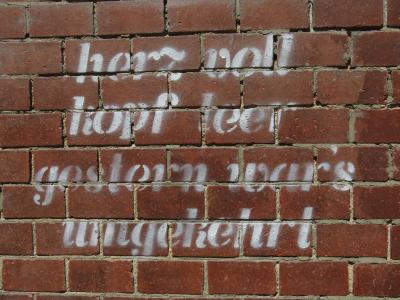 herz voll
kopf leer
gestern war's
umgekehrt